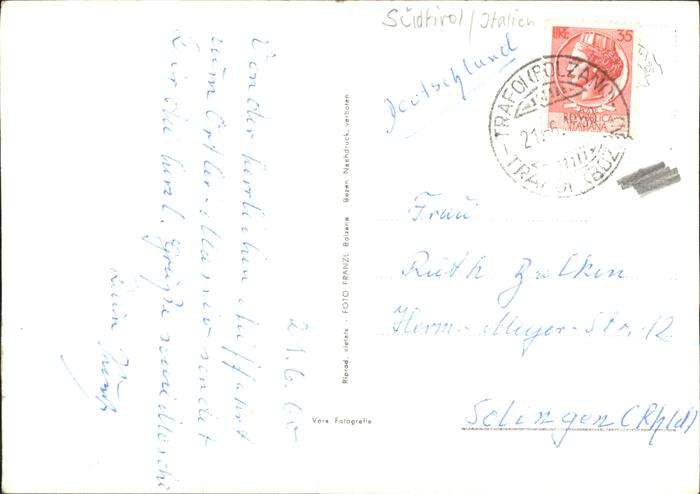 Südtirol/Italien
Deutschland
LIRE 35
REPVBBLICA
ITALIANA
TRAFOI (BOLZANO)
TRAFOI (BOZ
21.-6.
Von der herrlichen Auffahrt
zum Ortler-Massiv sendet
Dir die herzl. Grüße
21.6.60
Riprod. vietata - FOTO FRANZL Bolzano Bozen Nachdruck verboten
Vera Fotografia
Frau
Ruth
Herm.-Meyer-Str. 12
Solingen (Rhld)